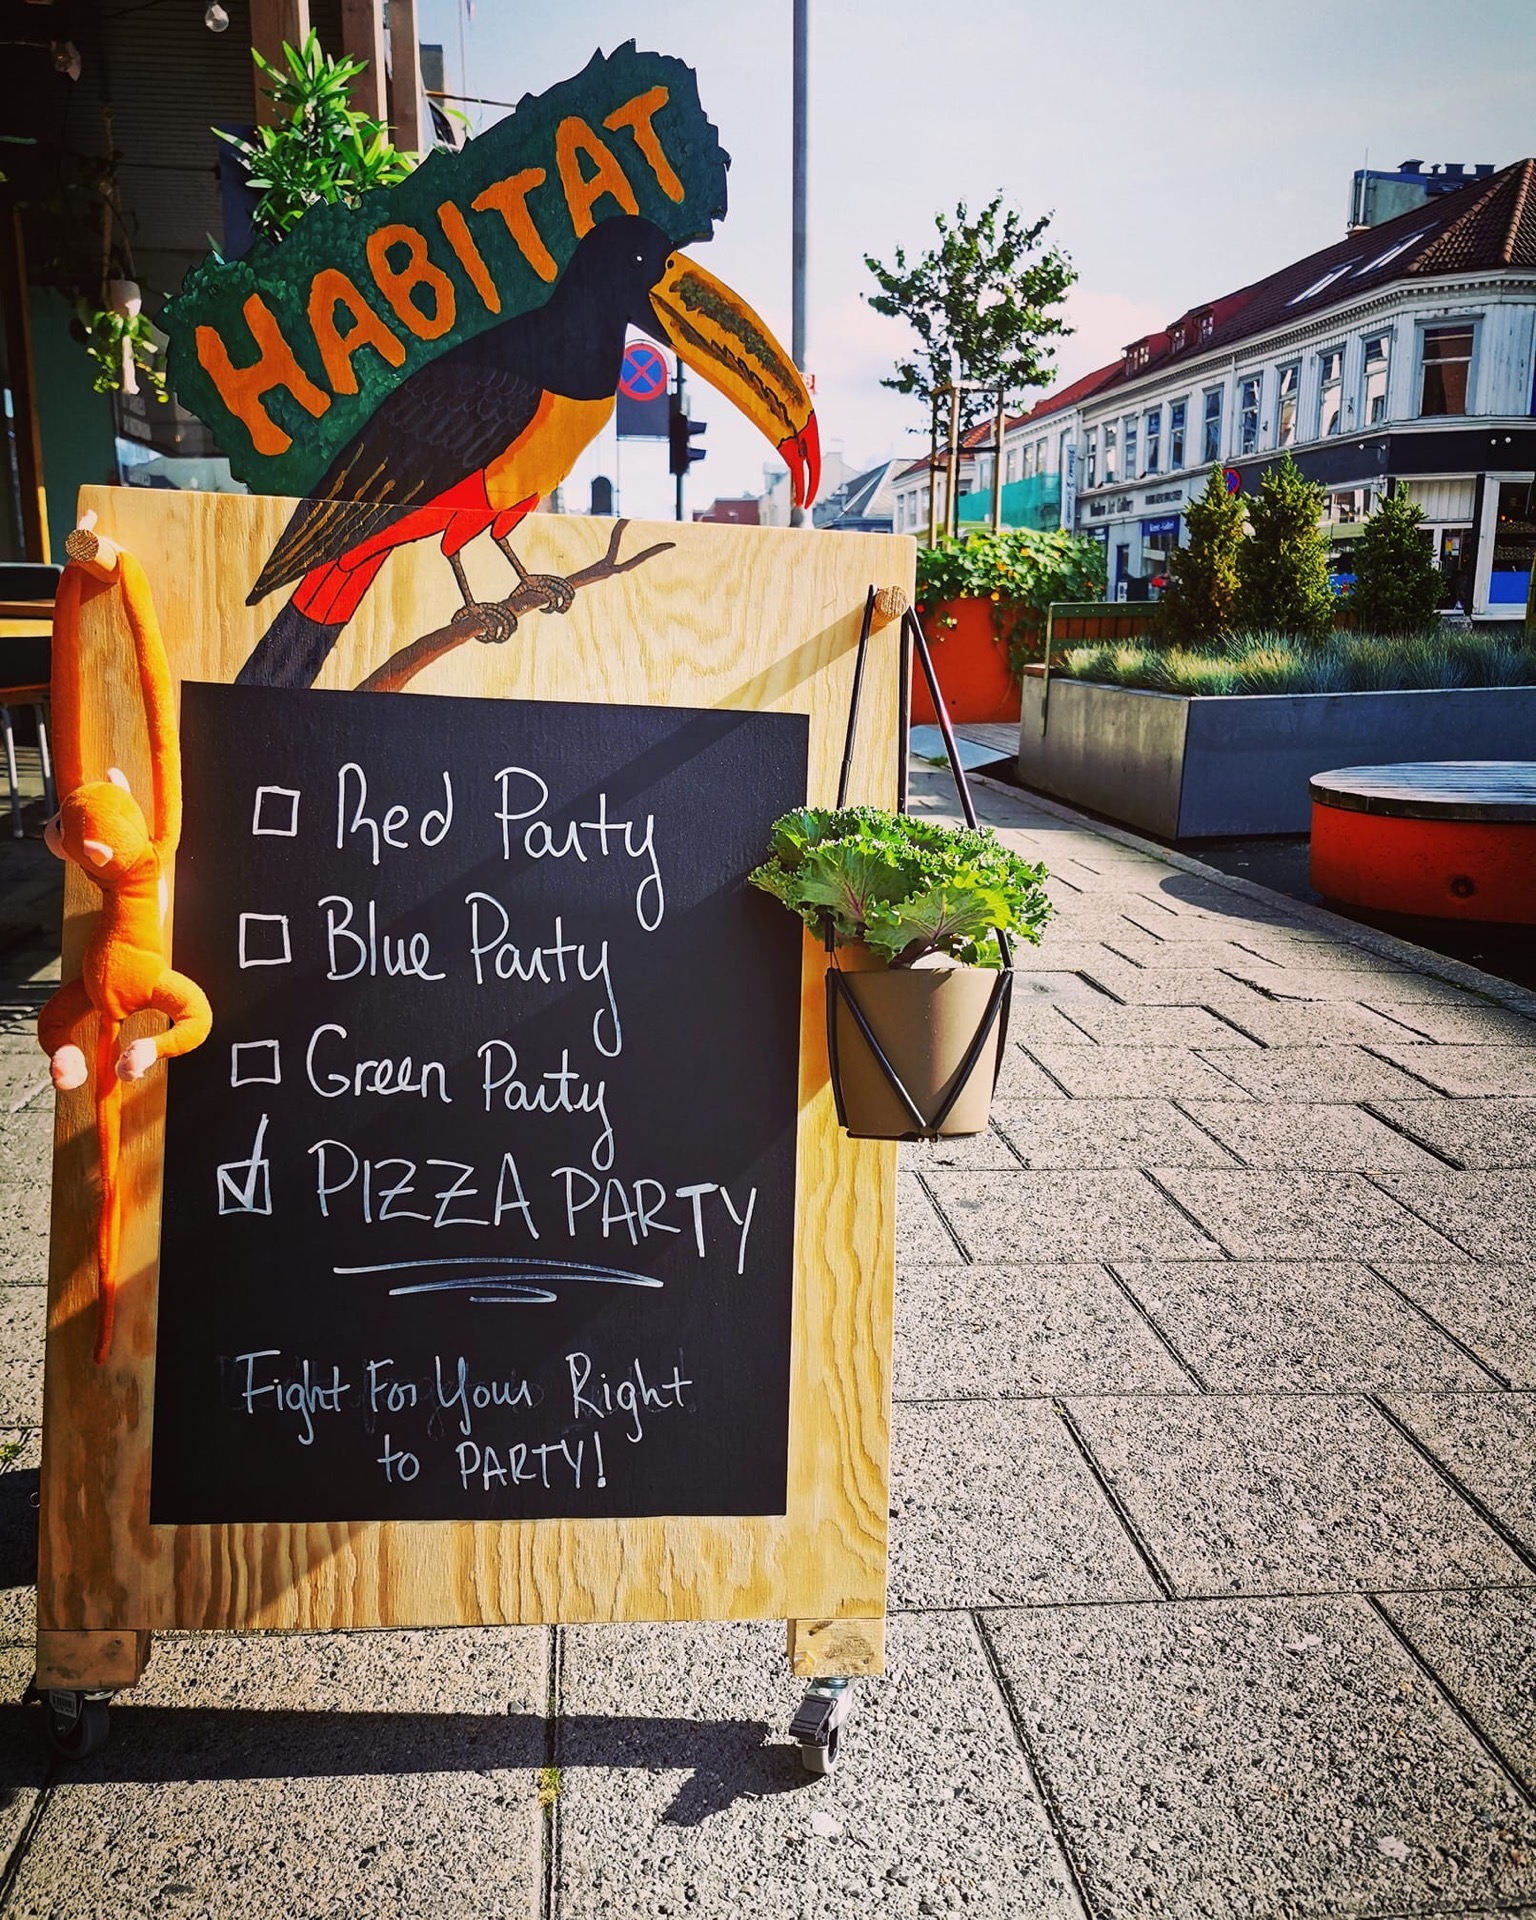 HABITAT
Red Party
Blue Party
Green Party
PIZZA PARTY
Fight For Your Right
to PARTY!